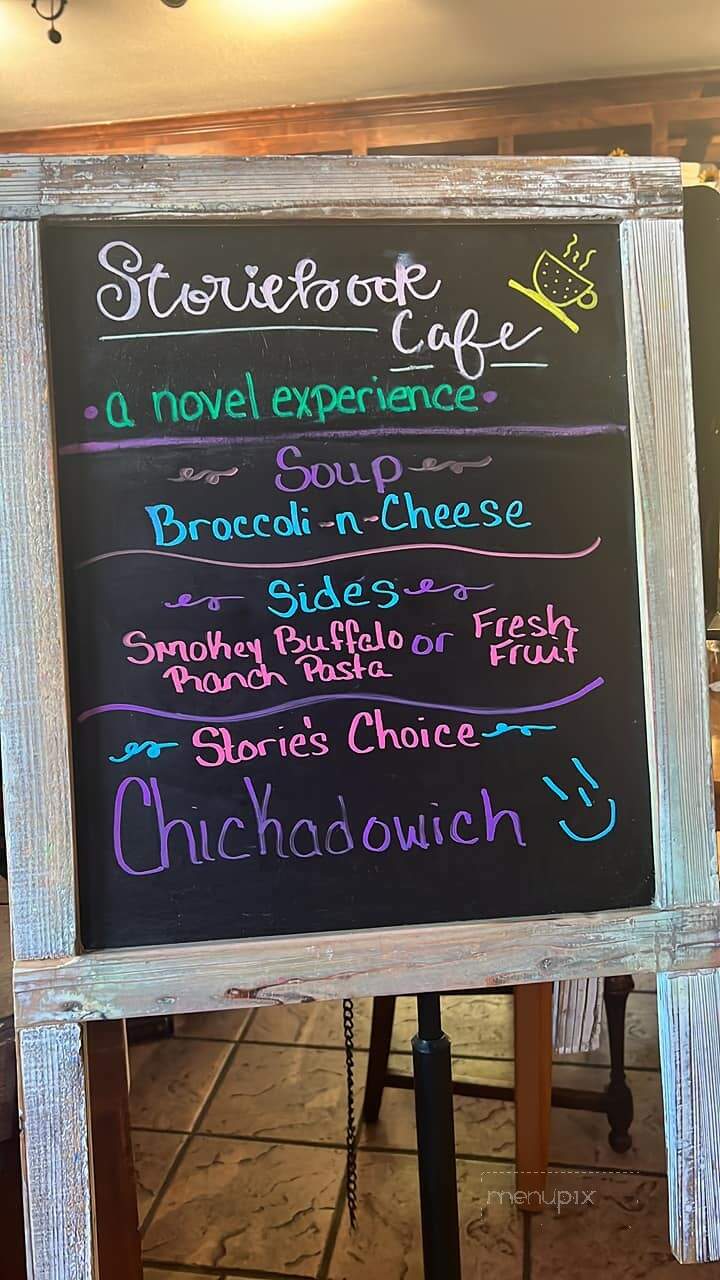 Storiebook
Cafe
• a novel experience •
Soup
Broccoli-n-Cheese
Sides
Smokey Buffalo or Fresh
Ranch Pasta Fruit
Storie's Choice
Chickadowich
menupix